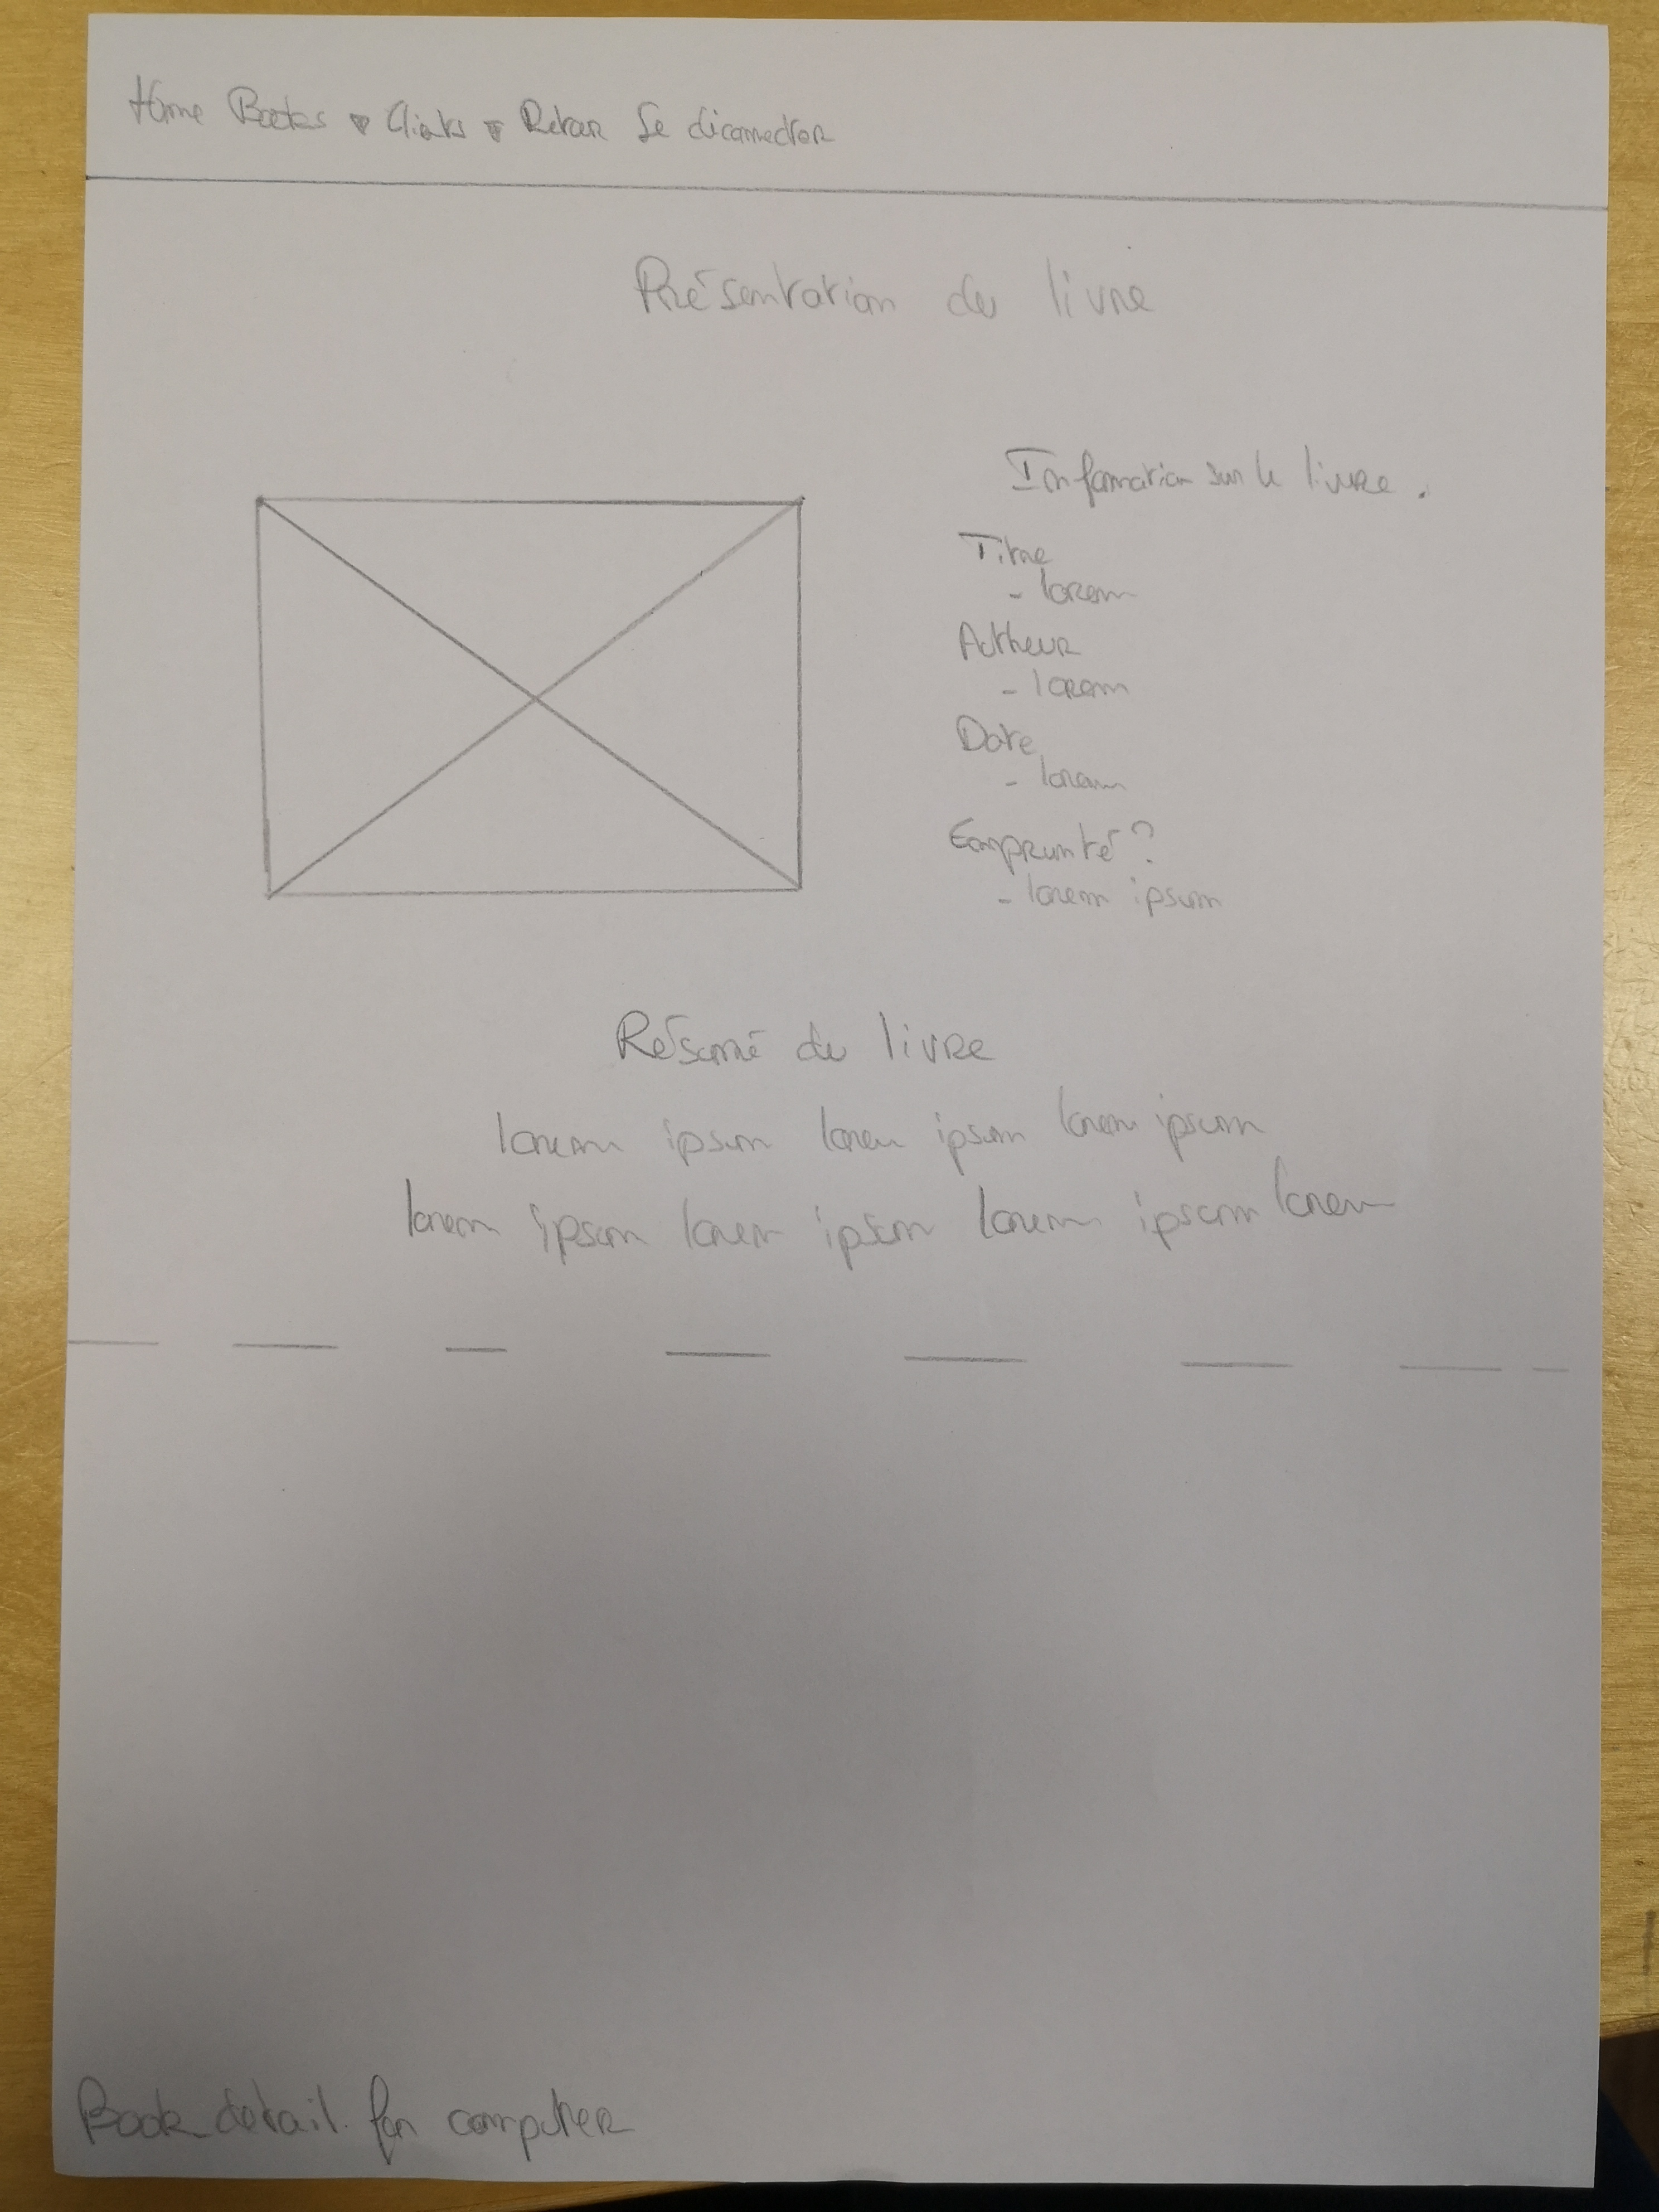 Home Books ▼ Clients ▼ Retour Se diconnecter
Présentation du livre
Information sur le livre.
Titre
- lorem
Autheur
- lorem
Date
- lorem
Emprunté ?
- lorem ipsum
Résumé du livre
lorem ipsum lorem ipsum lorem ipsum
lorem ipsum lorem ipsum lorem ipsum lorem
Book detail for computer